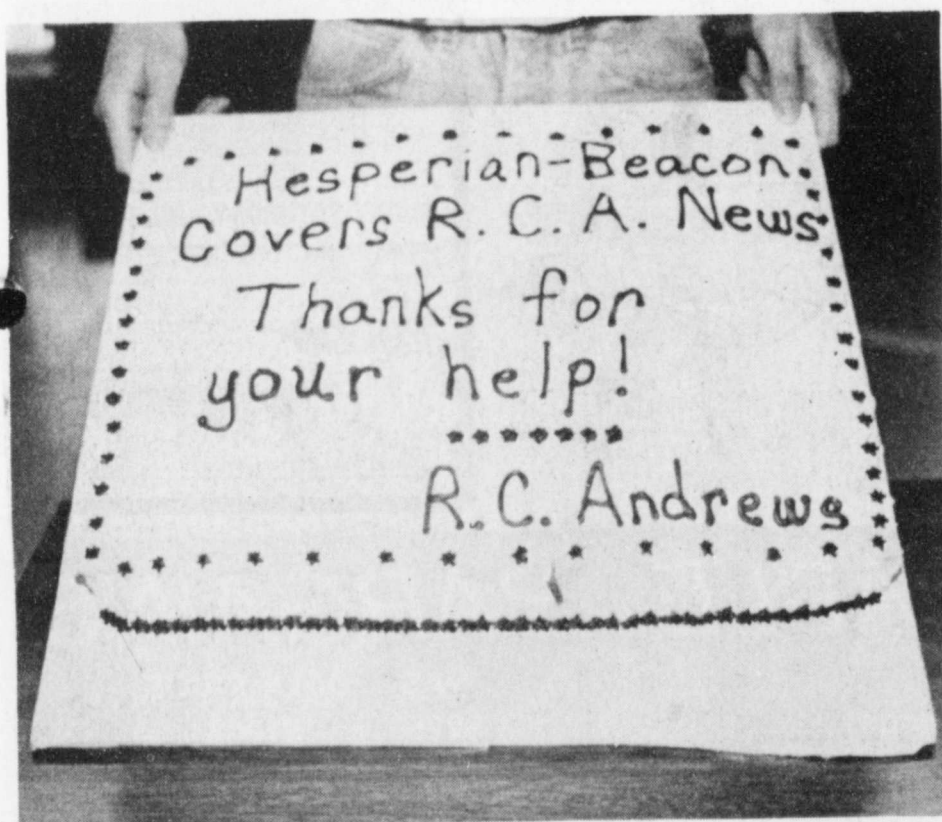 Hesperian-Beacon
Covers R. C. A. News
Thanks for
your help!
R.C. Andrews